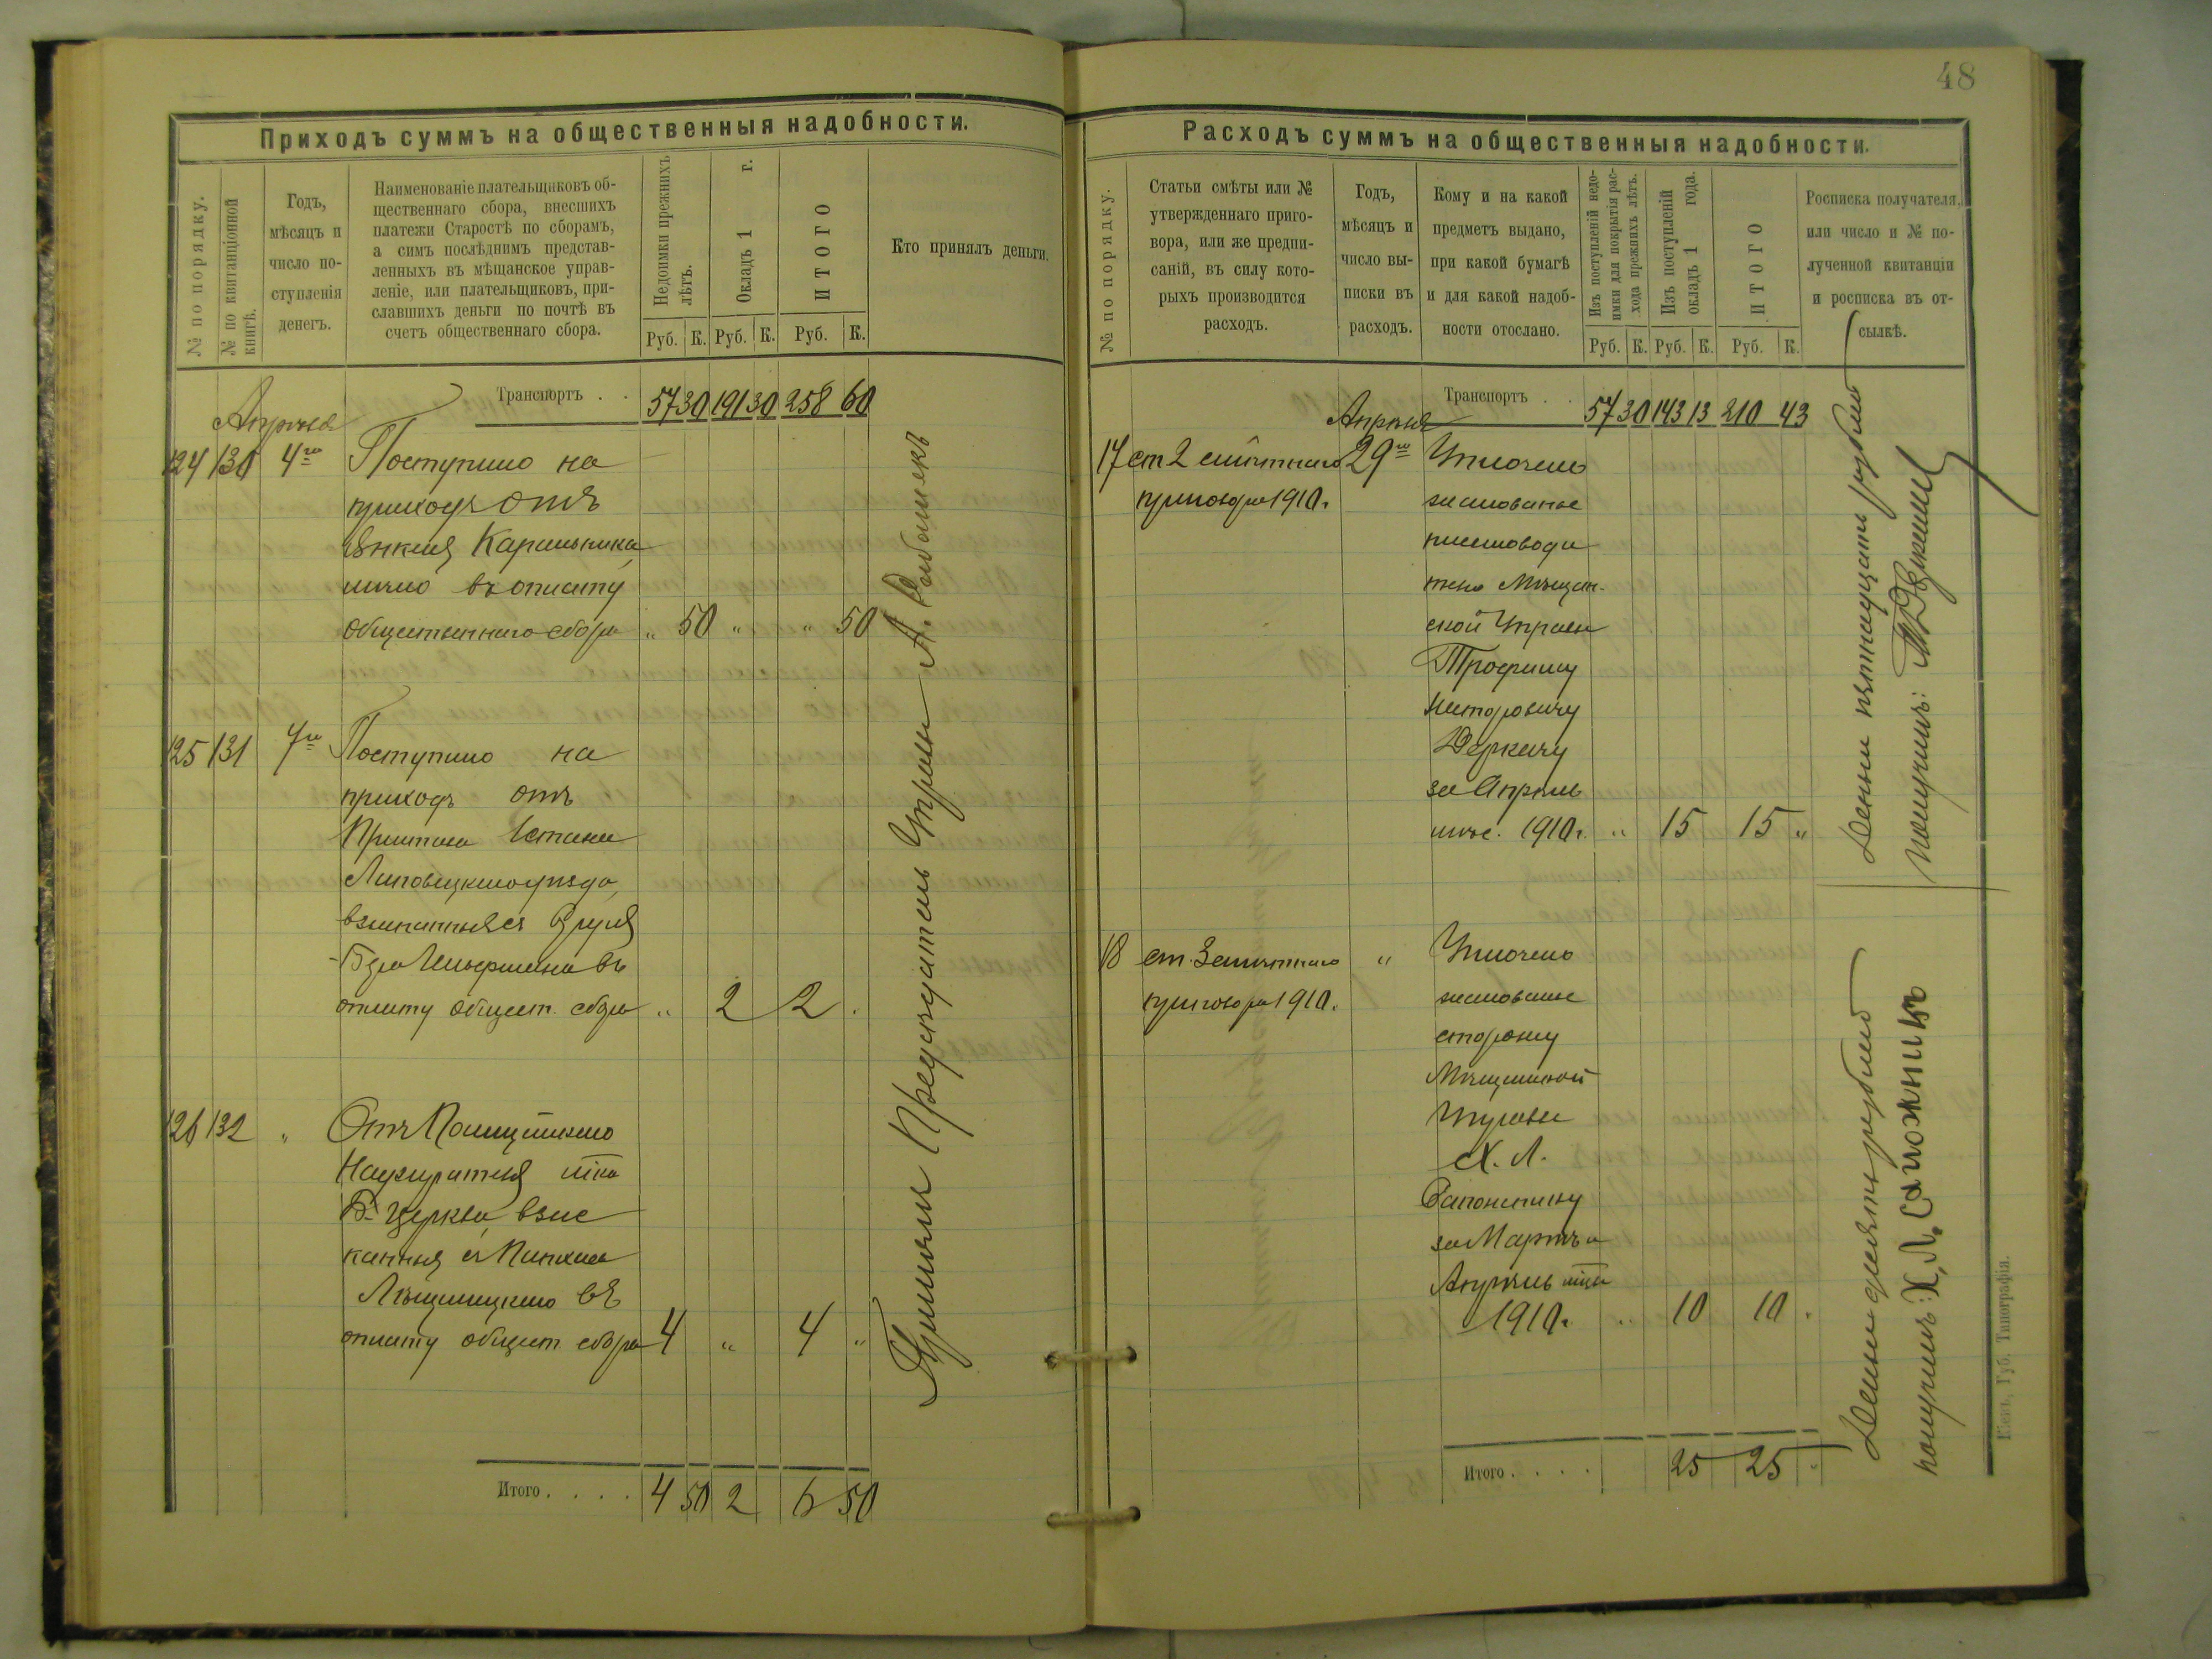 Приходъ суммъ на общественныя надобности.
№ по порядку.
№ по квитанціонной книгѣ.
Годъ,
мѣсяцъ и
число по-
ступленія
денегъ.
Наименованіе плательщиковъ об-
щественнаго сбора, внесшихъ
платежи Старостѣ по сборамъ,
а симъ послѣднимъ представ-
ленныхъ въ мѣщанское управ-
леніе, или плательщиковъ, при-
славшихъ деньги по почтѣ въ
счетъ общественнаго сбора.
Недоимки прежнихъ
лѣтъ.
Окладъ 1 г.
ИТОГО
Кто принялъ деньги.
Руб. К. Руб. К. Руб. К.
Транспортъ . . 57 30 191 30 258 60
Апрѣля
124 130 4го Поступило на
приходъ отъ
Янкеля Каральника
лично въ оплату
общественнаго сбора " 50 " " 50
125 131 7го Поступило на
приходъ отъ
Пристава Стана
Липовецкаго уѣзда
взысканныя съ
въ
оплату общест. сбора " 2 2 .
126 132 " Отъ Полицейскаго
Надзирателя м-ка
Б. Церкви, взыс
канныя съ Пинхаса
въ
оплату общест. сбора 4 " 4 "
Итого . . . . 4 50 2 6 50
Принялъ Предсѣдатель Управы А. Рабомекъ
48
Расходъ суммъ на общественныя надобности.
№ по порядку.
Статьи смѣты или №
утвержденнаго приго-
вора, или же предпи-
саній, въ силу кото-
рыхъ производится
расходъ.
Годъ,
мѣсяцъ и
число вы-
писки въ
расходъ.
Кому и на какой
предметъ выдано,
при какой бумагѣ
и для какой надоб-
ности отослано.
Изъ поступленій недо-
имки для покрытія рас-
хода прежнихъ лѣтъ.
Изъ поступленій
окладъ 1 года.
ИТОГО
Росписка получателя,
или число и № по-
лученной квитанціи
и росписка въ от-
сылкѣ.
Руб. К. Руб. К. Руб. К.
Транспортъ . . 57 30 143 13 210 43
Апрѣля
17 ст 2 смѣтнаго 29го Уплочено
приговора 1910 г. жалованье
писмоводи
телю Мѣщан-
ской Управы
Трофиму
Несторовичу
Деркачу
за Апрѣль
мѣс. 1910 г. " 15 15 "
Деньги пятнадцать рублей
получилъ: Т. Деркачъ
18 ст. 3 смѣтнаго " Уплочено
приговора 1910 г. жалованье
сторожу
Мѣщанской
Управы
Х. Л.
Сапожнику
за Мартъ и
Апрѣль м-цы
1910 г. " 10 10 .
Деньги десять рублей
получилъ: Х. Л. Сапожникъ
Итого . . . . 25 25
Кіевъ, Губ. Типографія.